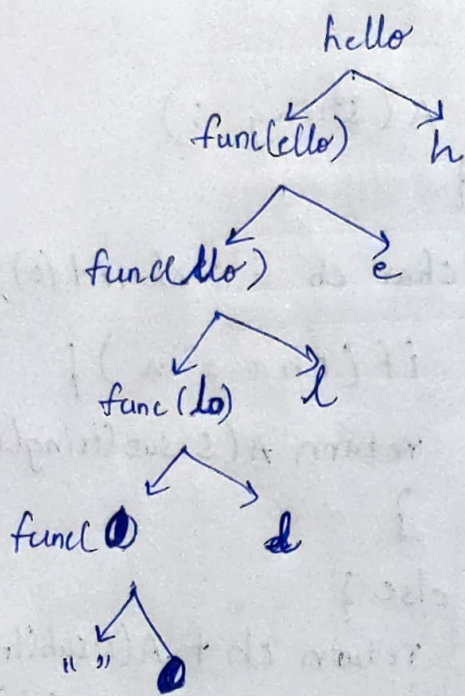 hello
func(ello) h
func(llo) e
func(lo) l
func(o)
" " o